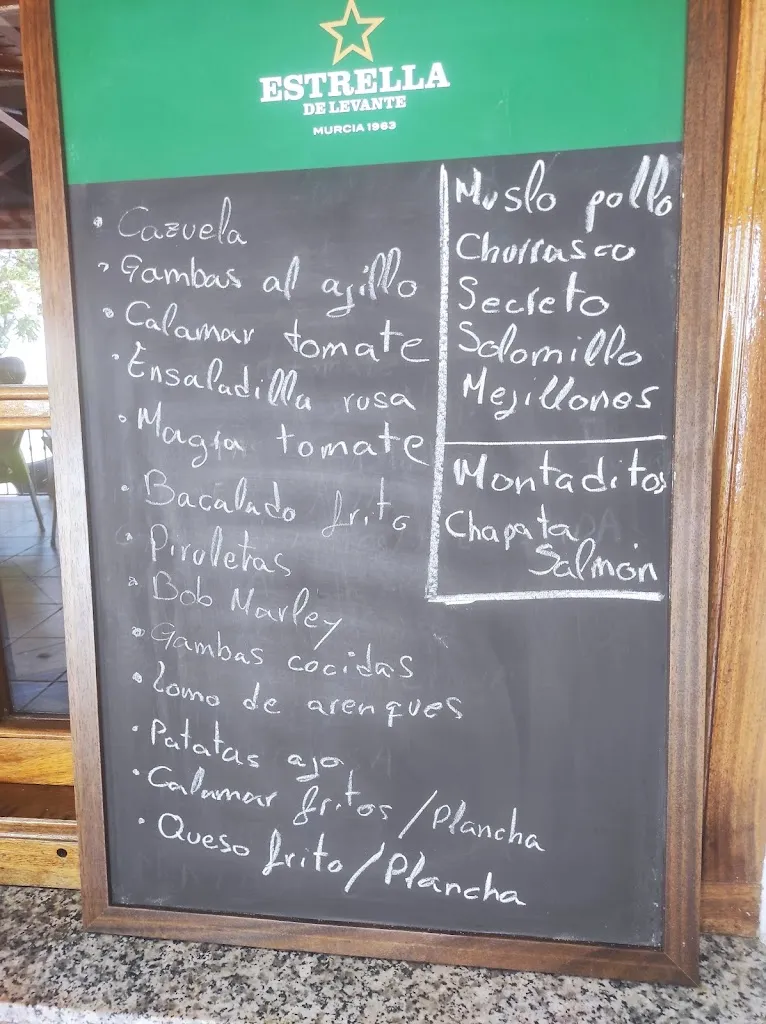 ESTRELLA
DE LEVANTE
MURCIA 1963
• Cazuela
• Gambas al ajillo
• Calamar tomate
• Ensaladilla rusa
• Magra tomate
• Bacalado frito
• Piruletas
• Bob Marley
• Gambas cocidas
• Lomo de arenques
• Patatas ajo
• Calamar fritos / Plancha
• Queso frito / Plancha
Muslo pollo
Churrasco
Secreto
Solomillo
Mejillones
Montaditos
Chapata
Salmón